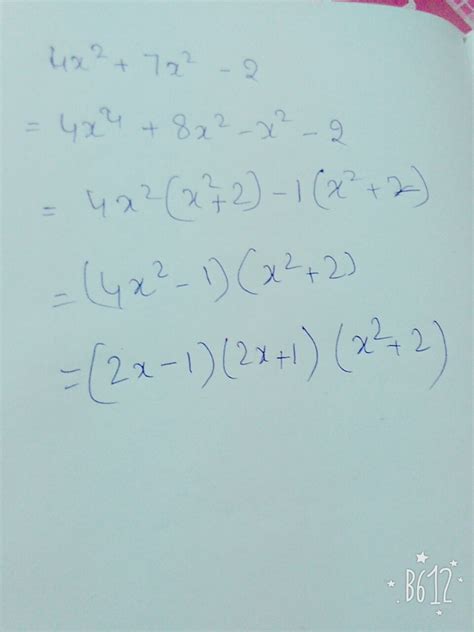 4x² + 7x² - 2
= 4x⁴ + 8x² - x² - 2
= 4x²(x²+2) - 1(x²+2)
= (4x² - 1)(x²+2)
= (2x-1)(2x+1)(x²+2)
B612